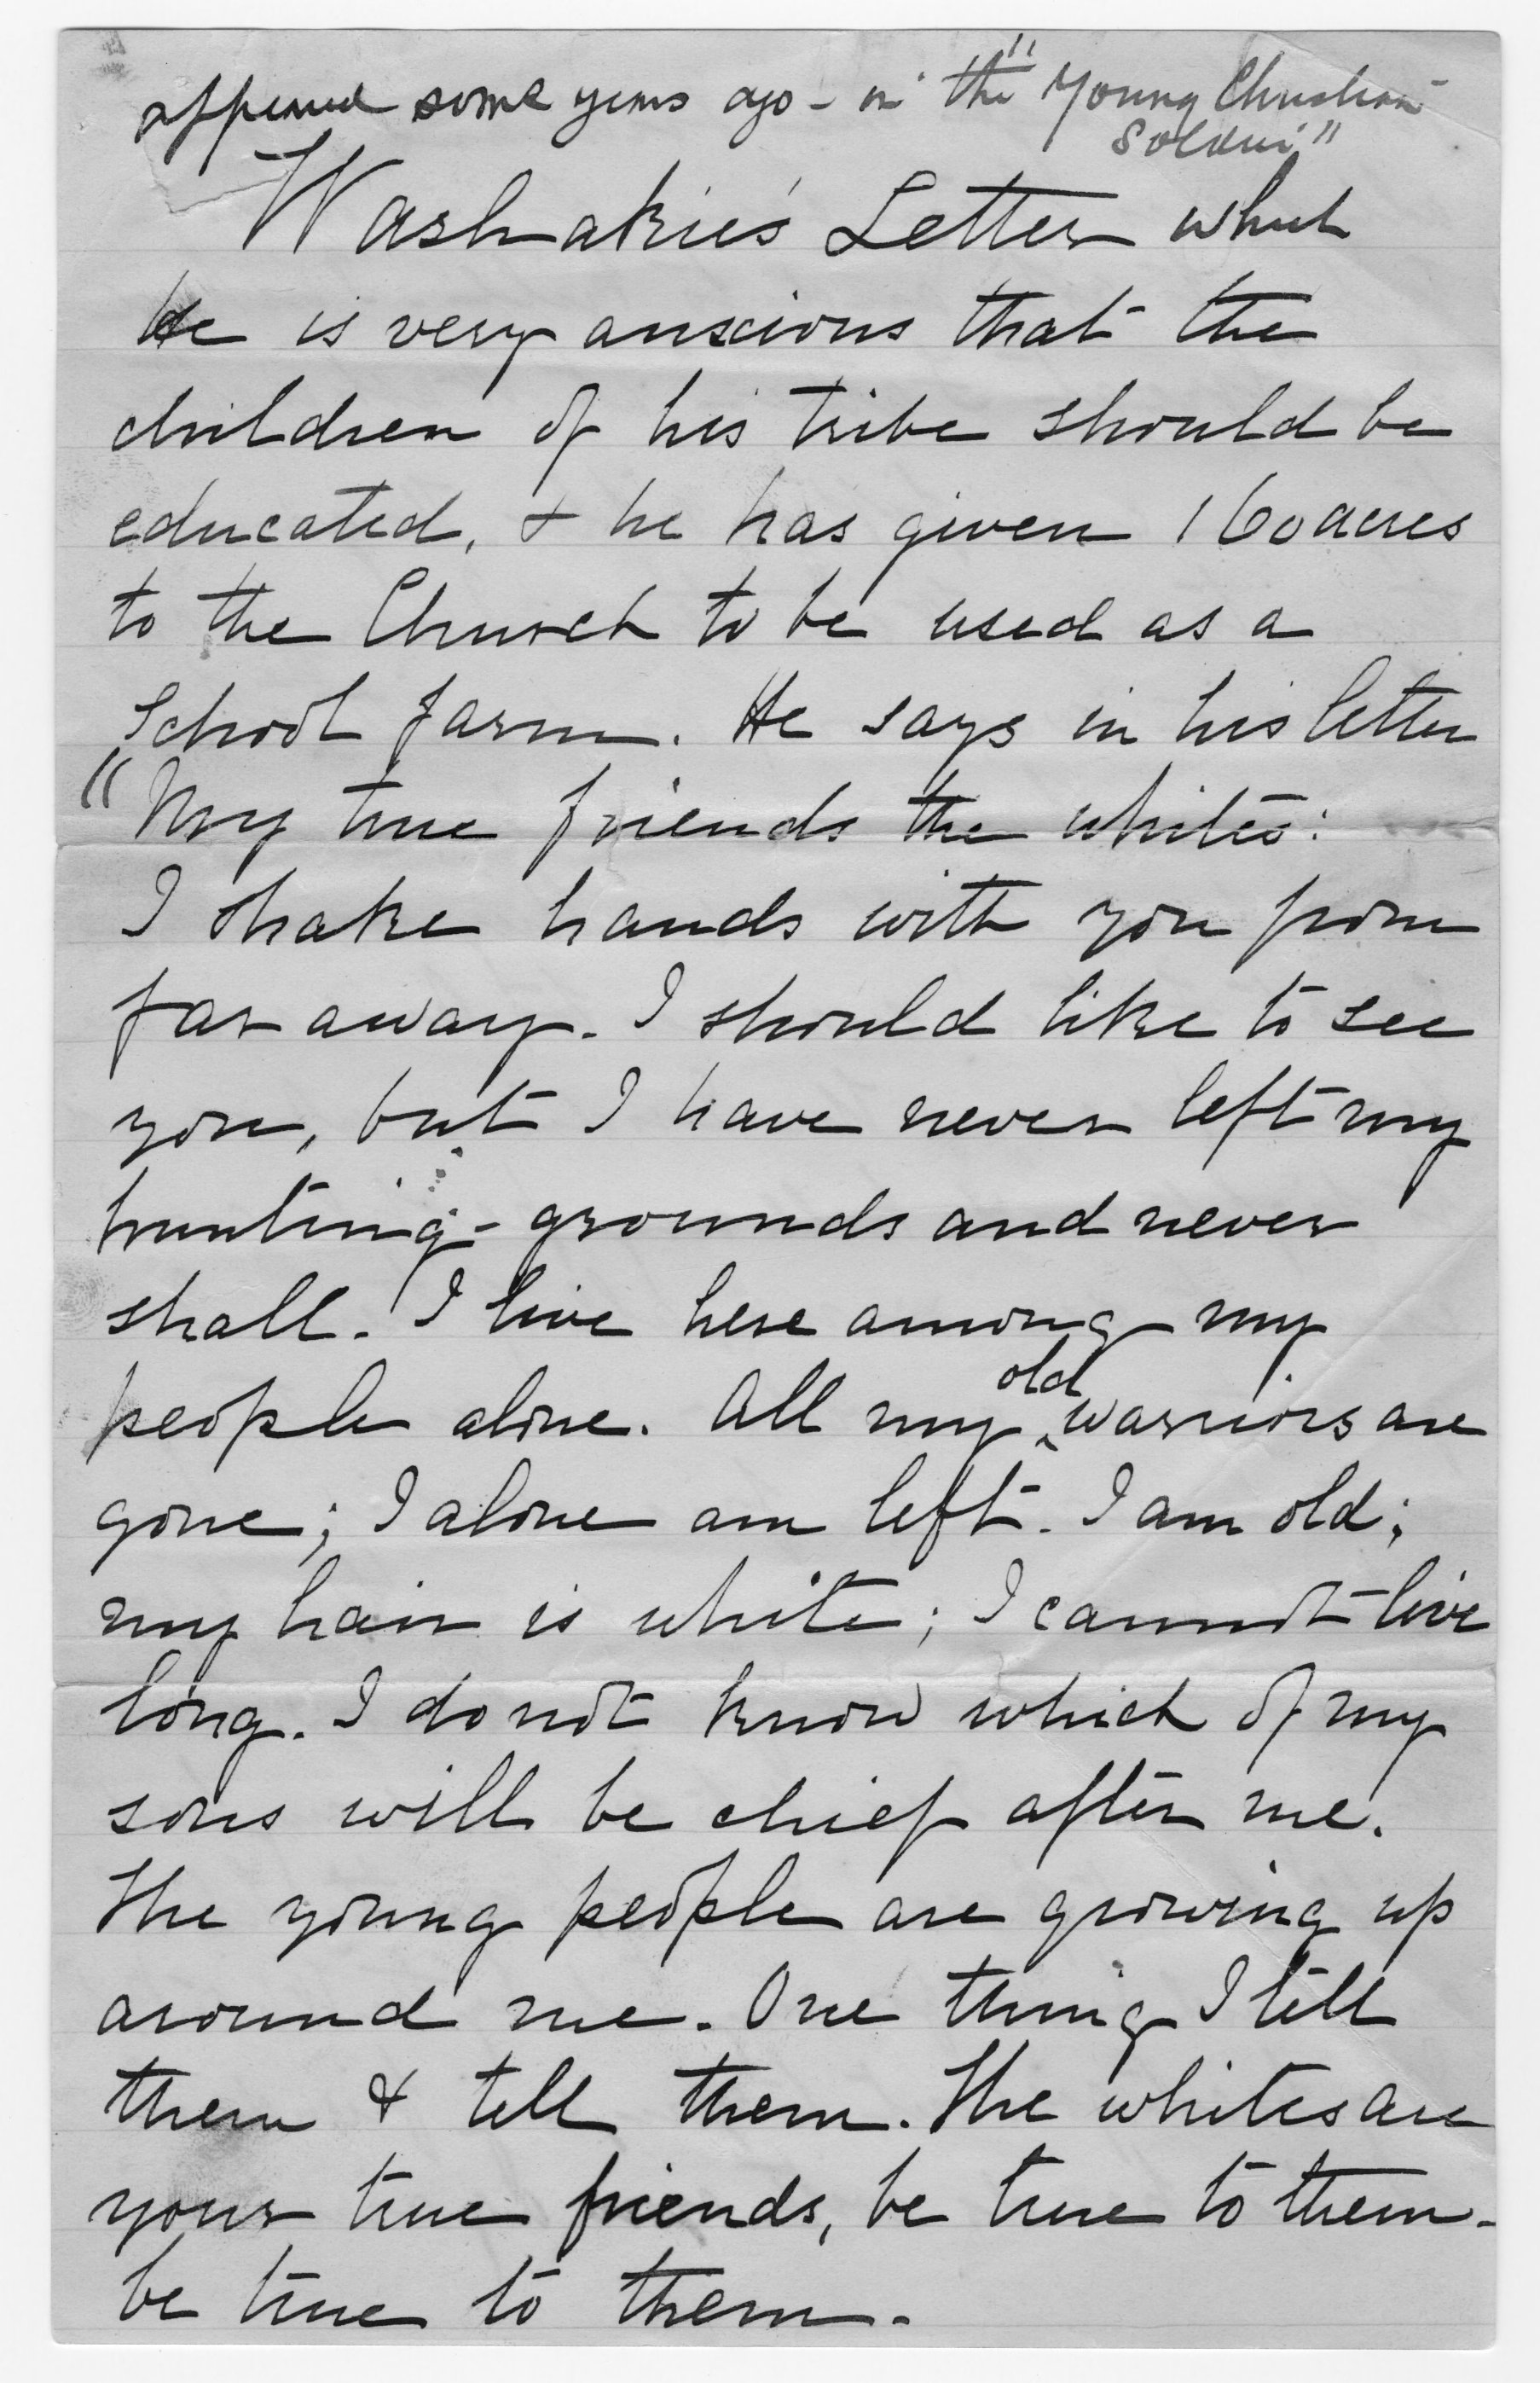 appeared some years ago - in the "Young Christian
Soldier"
Washakie's Letter which
He is very anxious that the
children of his tribe should be
educated, & he has given 160 acres
to the Church to be used as a
School farm. He says in his letter
"My true friends the whites:
I shake hands with you from
far away. I should like to see
you, but I have never left my
hunting-grounds and never
shall. I live here among my
people alone. All my old warriors are
gone; I alone am left. I am old;
my hair is white; I cannot live
long. I do not know which of my
sons will be chief after me.
The young people are growing up
around me. One thing I tell
them & tell them. The whites are
your true friends, be true to them -
be true to them.